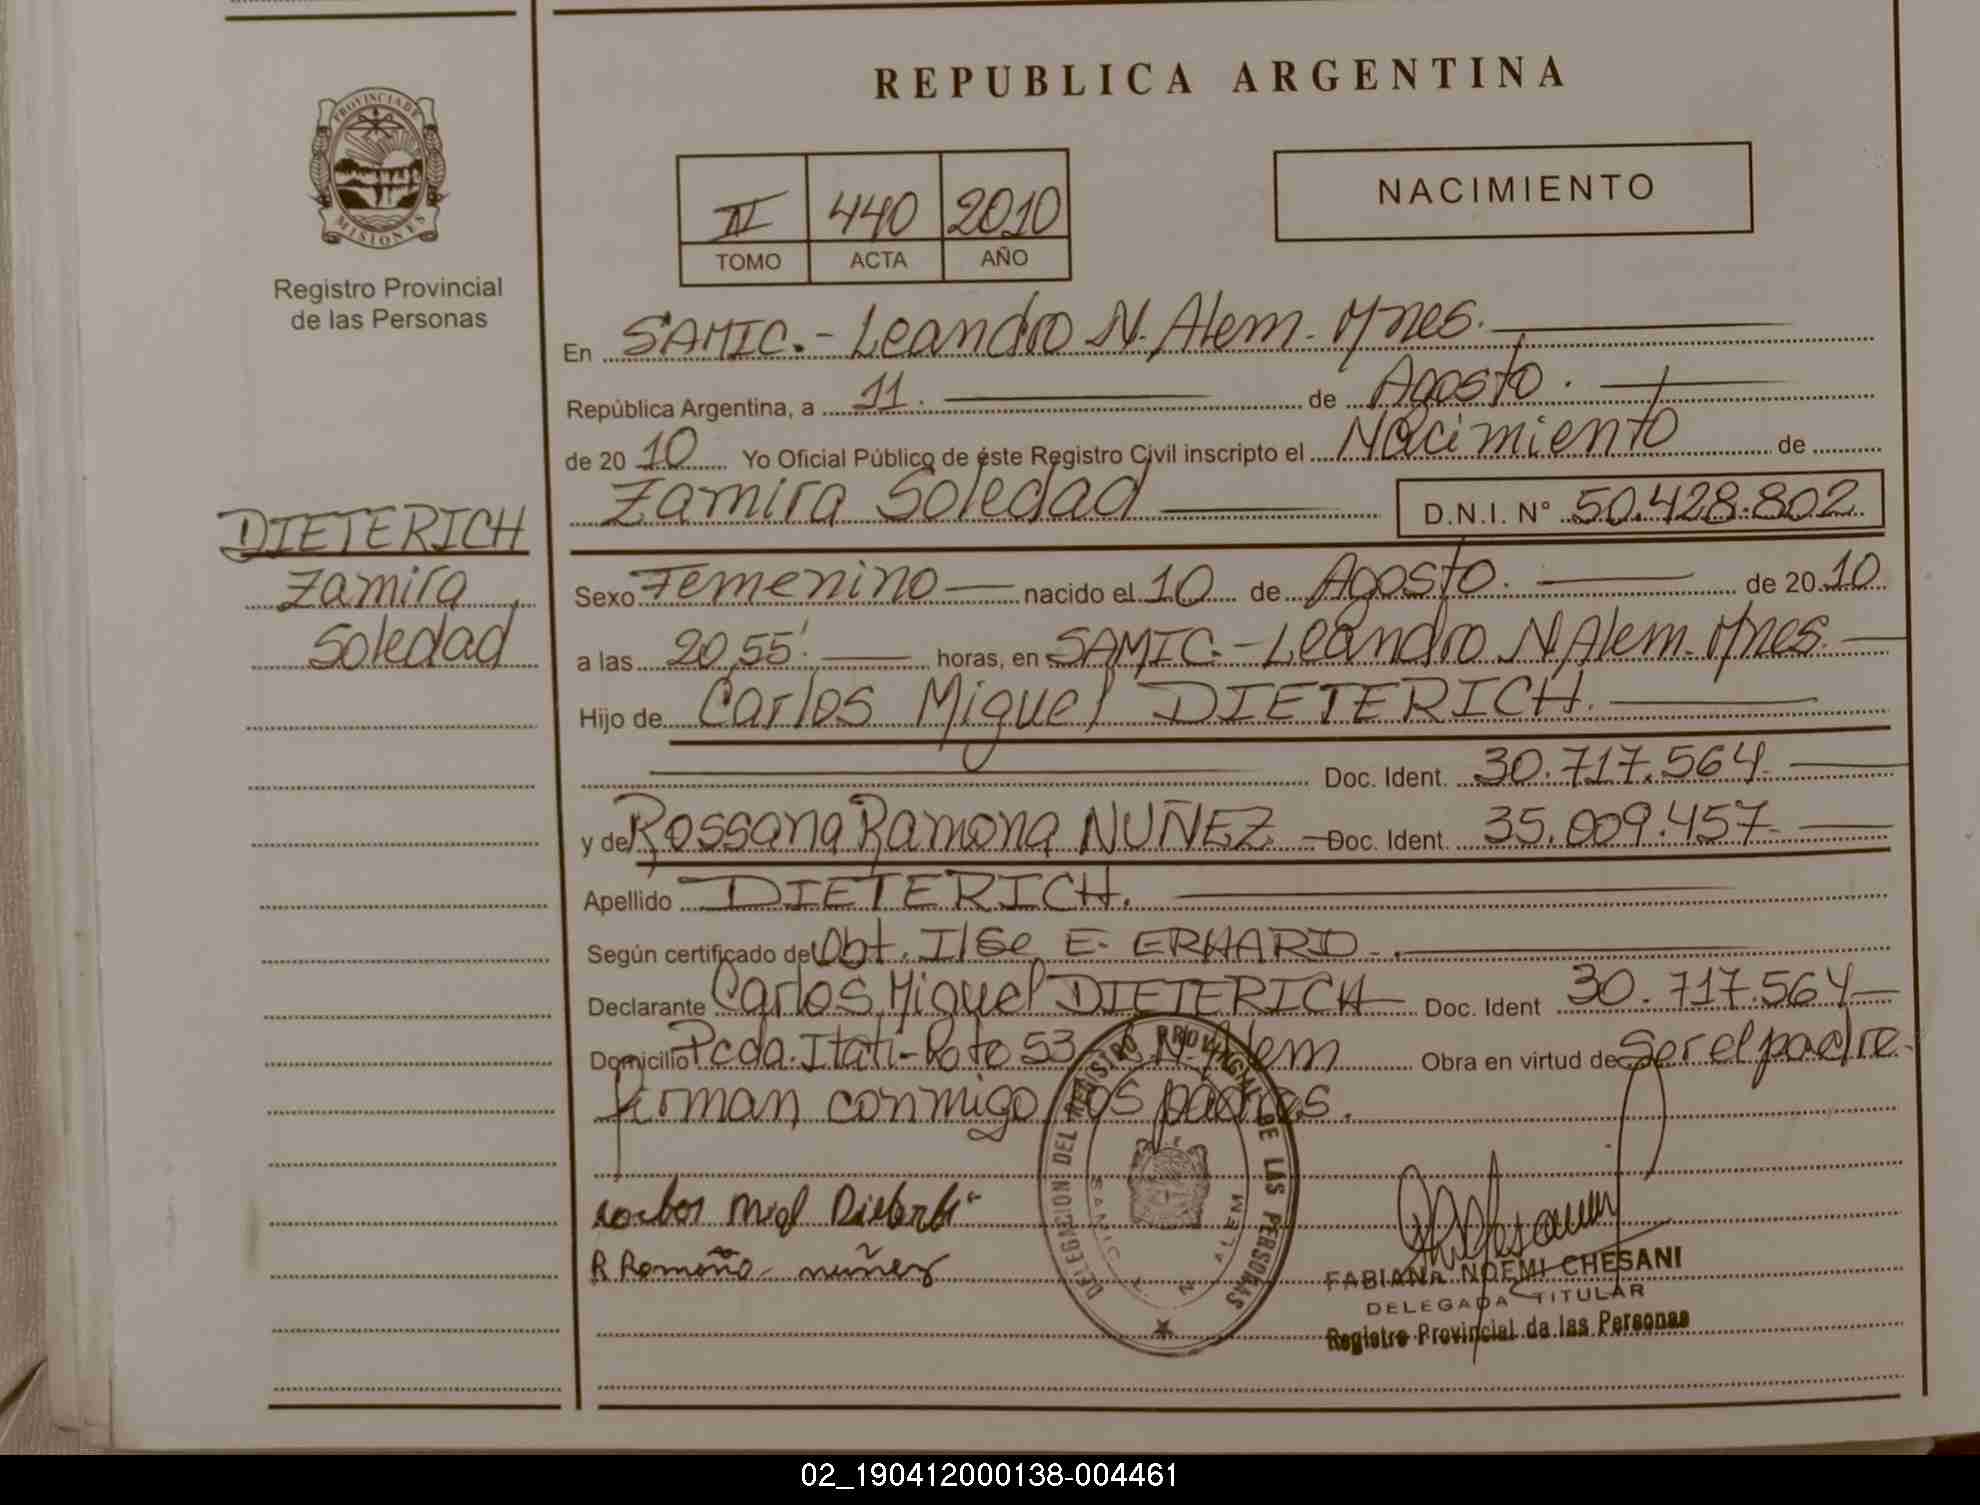 REPUBLICA ARGENTINA
PROVINCIA DE
MISIONES
Registro Provincial
de las Personas
440 2010
TOMO ACTA AÑO
NACIMIENTO
En SAMIC.- Leandro N. Alem. Mnes.
República Argentina, a 11. de Agosto.
de 20 10 Yo Oficial Público de éste Registro Civil inscripto el Nacimiento de
Zamira Soledad D.N.I. N° 50.428.802
DIETERICH
Zamira
Soledad
Sexo Femenino nacido el 10 de Agosto. de 20 10
a las 20,55' horas, en SAMIC.- Leandro N Alem. Mnes.
Hijo de Carlos Miguel DIETERICH.
Doc. Ident. 30.717.564
y de Rossana Ramona NUÑEZ Doc. Ident. 35.009.457
Apellido DIETERICH.
Según certificado de Obt. Ilse E. ERHARD.
Declarante Carlos Miguel DIETERICH Doc. Ident 30.717.564
Domicilio Pcda. Itati- Lote 53 L N. Alem Obra en virtud de Ser el padre.
Firman conmigo los padres.
DELEGACION DEL REGISTRO PROVINCIAL DE LAS PERSONAS
SAMIC L. N. ALEM
R Ramona nuñez
FABIANA NOEMI CHESANI
DELEGADA TITULAR
Registro Provincial de las Personas
02_190412000138-004461